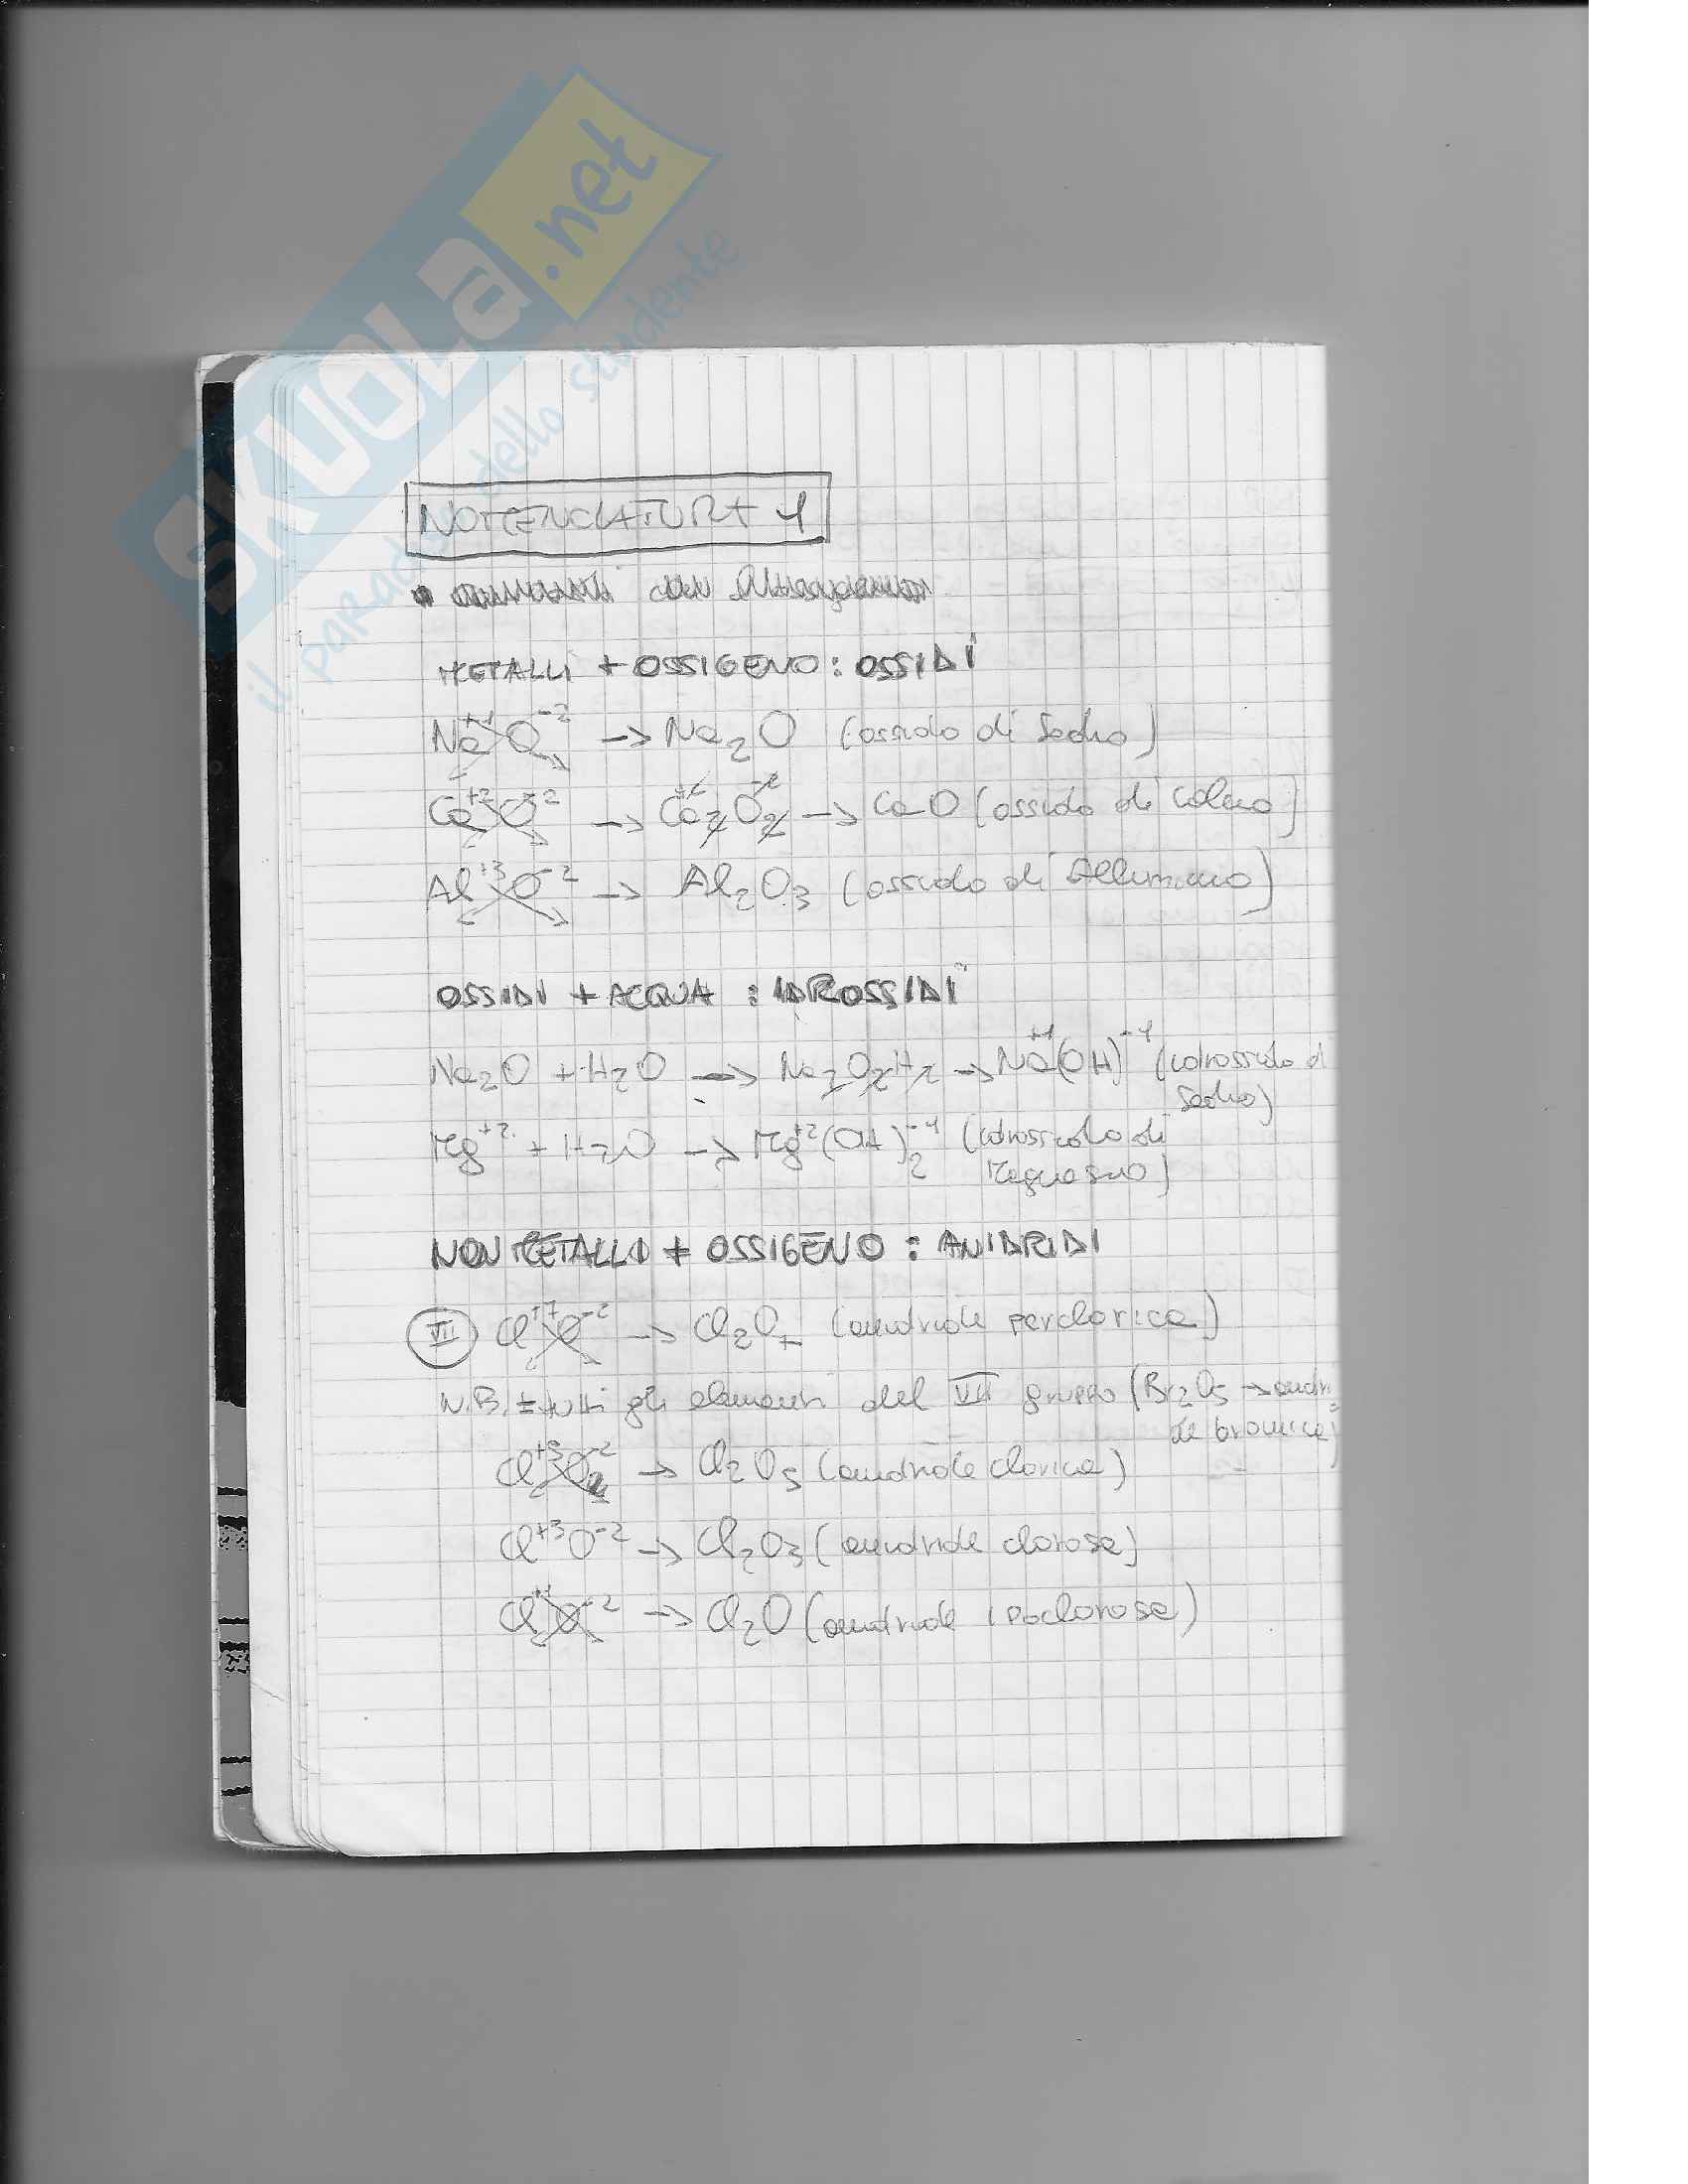 SKUOLA.net
il paradiso dello studente
NOMENCLATURA 1
METALLI + OSSIGENO : OSSIDI
Na⁺¹ O⁻² → Na₂O (ossido di Sodio)
Ca⁺² O⁻² → Ca₂⁺²O₂⁻² → CaO (ossido di Calcio)
Al⁺³ O⁻² → Al₂O₃ (ossido di Alluminio)
OSSIDI + ACQUA : IDROSSIDI
Na₂O + H₂O → Na₂O₂H₂ → Na⁺¹(OH)⁻¹ (idrossido di
Sodio)
Mg⁺² + H₂O → Mg⁺²(OH)₂⁻¹ (idrossido di
Magnesio)
NON METALLO + OSSIGENO : ANIDRIDI
VII Cl⁺⁷ O⁻² → Cl₂O₇ (anidride perclorica)
N.B. tutti gli elementi del VII gruppo (Br₂O₅ → anidri
de bromica)
Cl O⁻² → Cl₂O₅ (anidride clorica)
Cl⁺³O⁻² → Cl₂O₃ (anidride clorosa)
Cl⁺¹O⁻² → Cl₂O (anidride ipoclorosa)